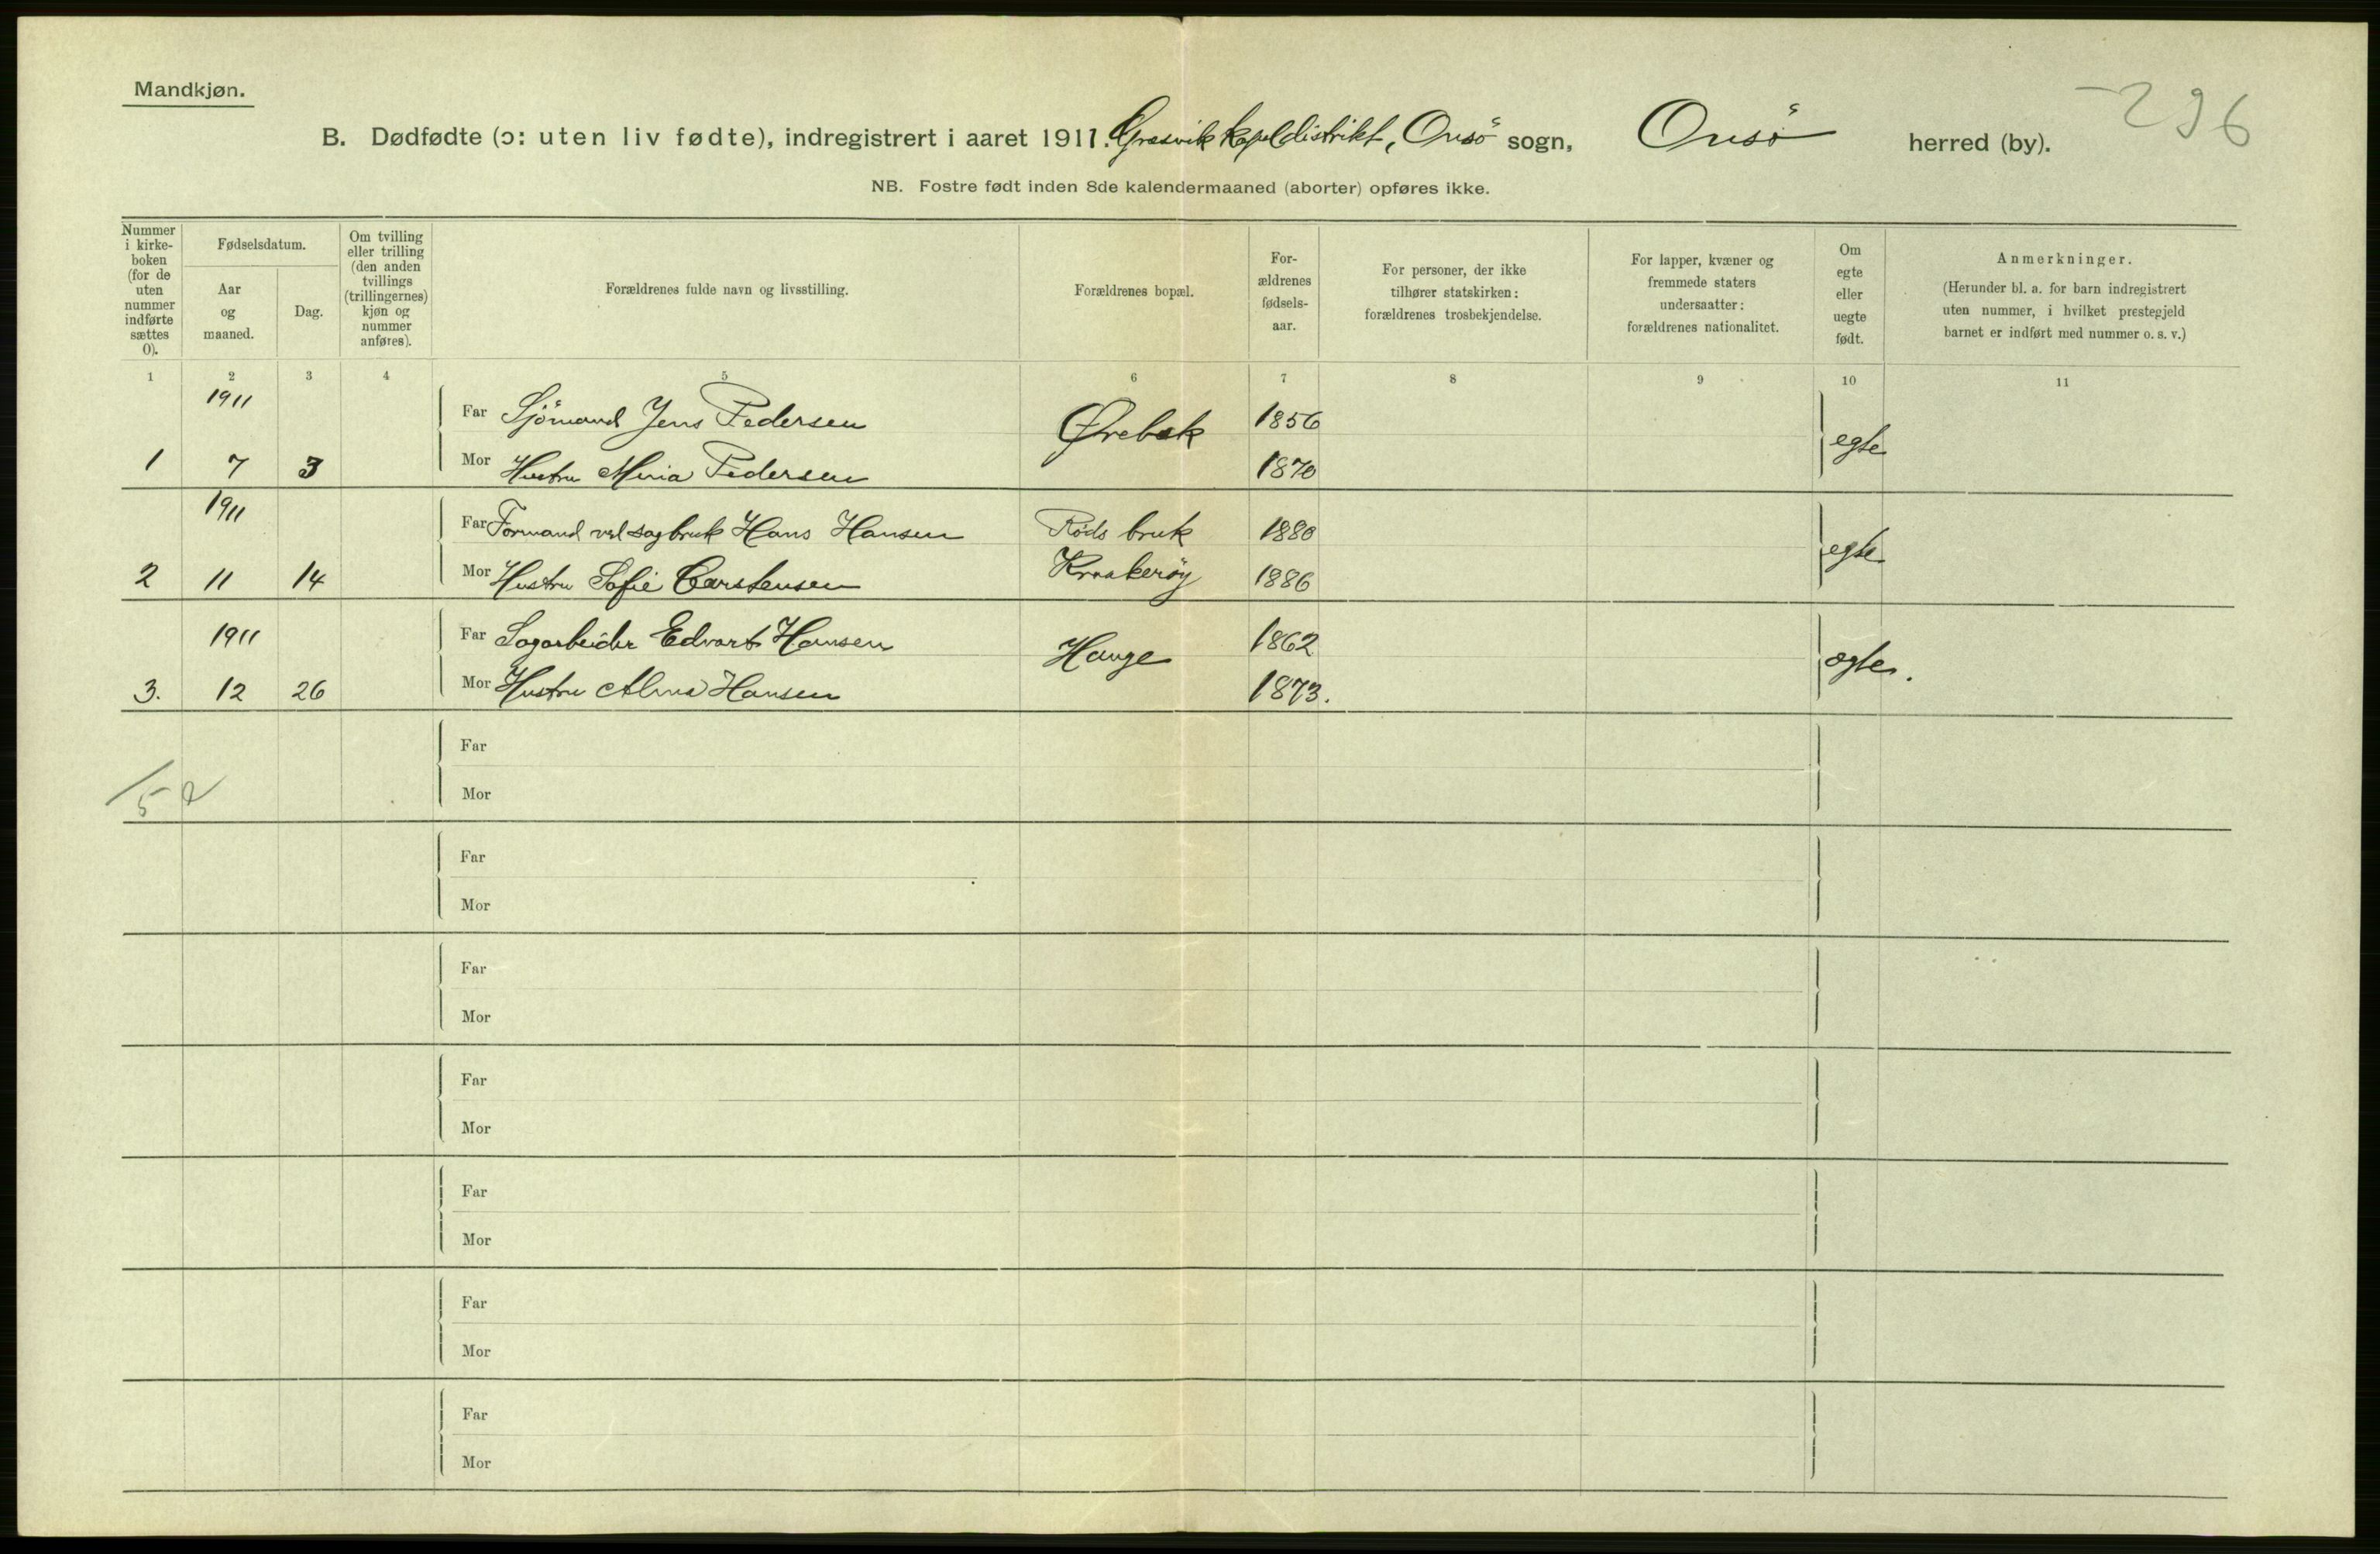 Mandkjøn.
296
B. Dødfødte (ɔ: uten liv fødte), indregistrert i aaret 1911. Græsvik Kapeldistrikt, Onsö sogn, Onsö herred (by).
NB. Fostre født inden 8de kalendermaaned (aborter) opføres ikke.
Nummer i kirke-boken (for de uten nummer indførte sættes 0).
Fødselsdatum.
Aar og maaned.
Dag.
Om tvilling eller trilling (den anden tvillings (trillingernes) kjøn og nummer anføres).
Forældrenes fulde navn og livsstilling.
Forældrenes bopæl.
For-ældrenes fødsels-aar.
For personer, der ikke tilhører statskirken: forældrenes trosbekjendelse.
For lapper, kvæner og fremmede staters undersaatter: forældrenes nationalitet.
Om egte eller uegte født.
Anmerkninger. (Herunder bl. a. for barn indregistrert uten nummer, i hvilket prestegjeld barnet er indført med nummer o. s. v.)
1 2 3 4 5 6 7 8 9 10 11
1911 Far Sjömand Jens Pedersen Ørebæk 1856 egte
1 7 3 Mor Hustru Mina Pedersen 1870
1911 Far Formand ved sagbruk Hans Hansen Röds bruk 1880 egte
2 11 14 Mor Hustru Sofie Carstensen Kraakeröy 1886
1911 Far Sagarbeider Edvart Hansen Hauge 1862 egte.
3. 12 26 Mor Hustru Alma Hansen 1873.
Far
Mor
Far
Mor
Far
Mor
Far
Mor
Far
Mor
Far
Mor
Far
Mor